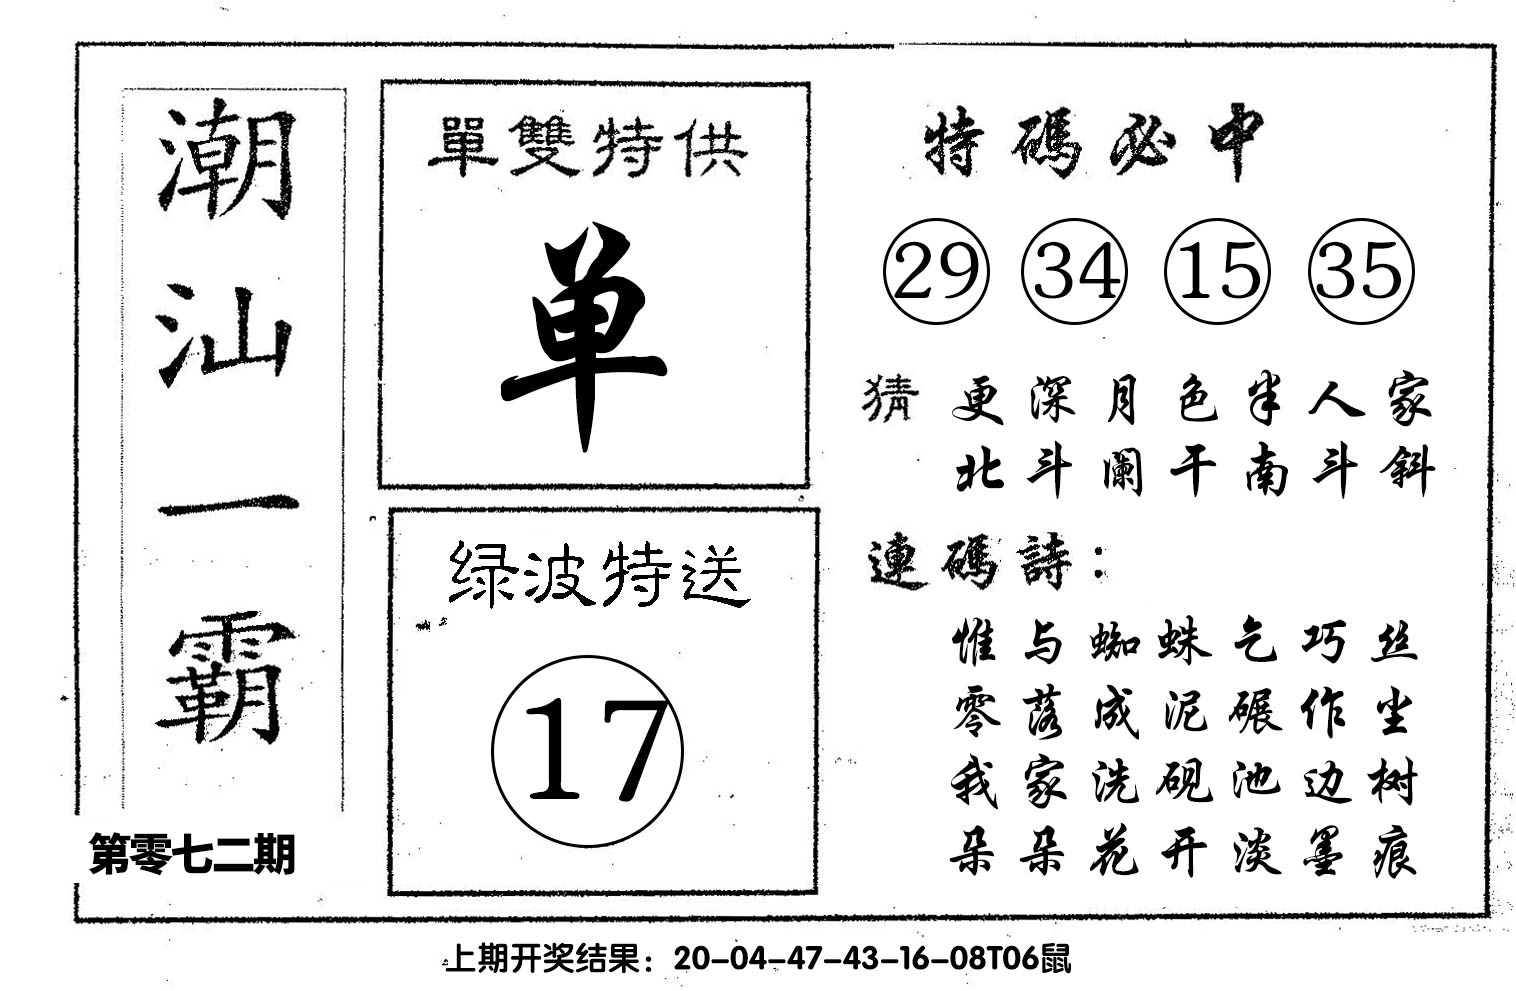 潮汕一霸
第零七二期
單雙特供
单
绿波特送
17
特碼必中
29 34 15 35
猜 更深月色半人家
北斗阑干南斗斜
連碼詩：
惟与蜘蛛乞巧丝
零落成泥碾作尘
我家洗砚池边树
朵朵花开淡墨痕
上期开奖结果：20-04-47-43-16-08T06鼠